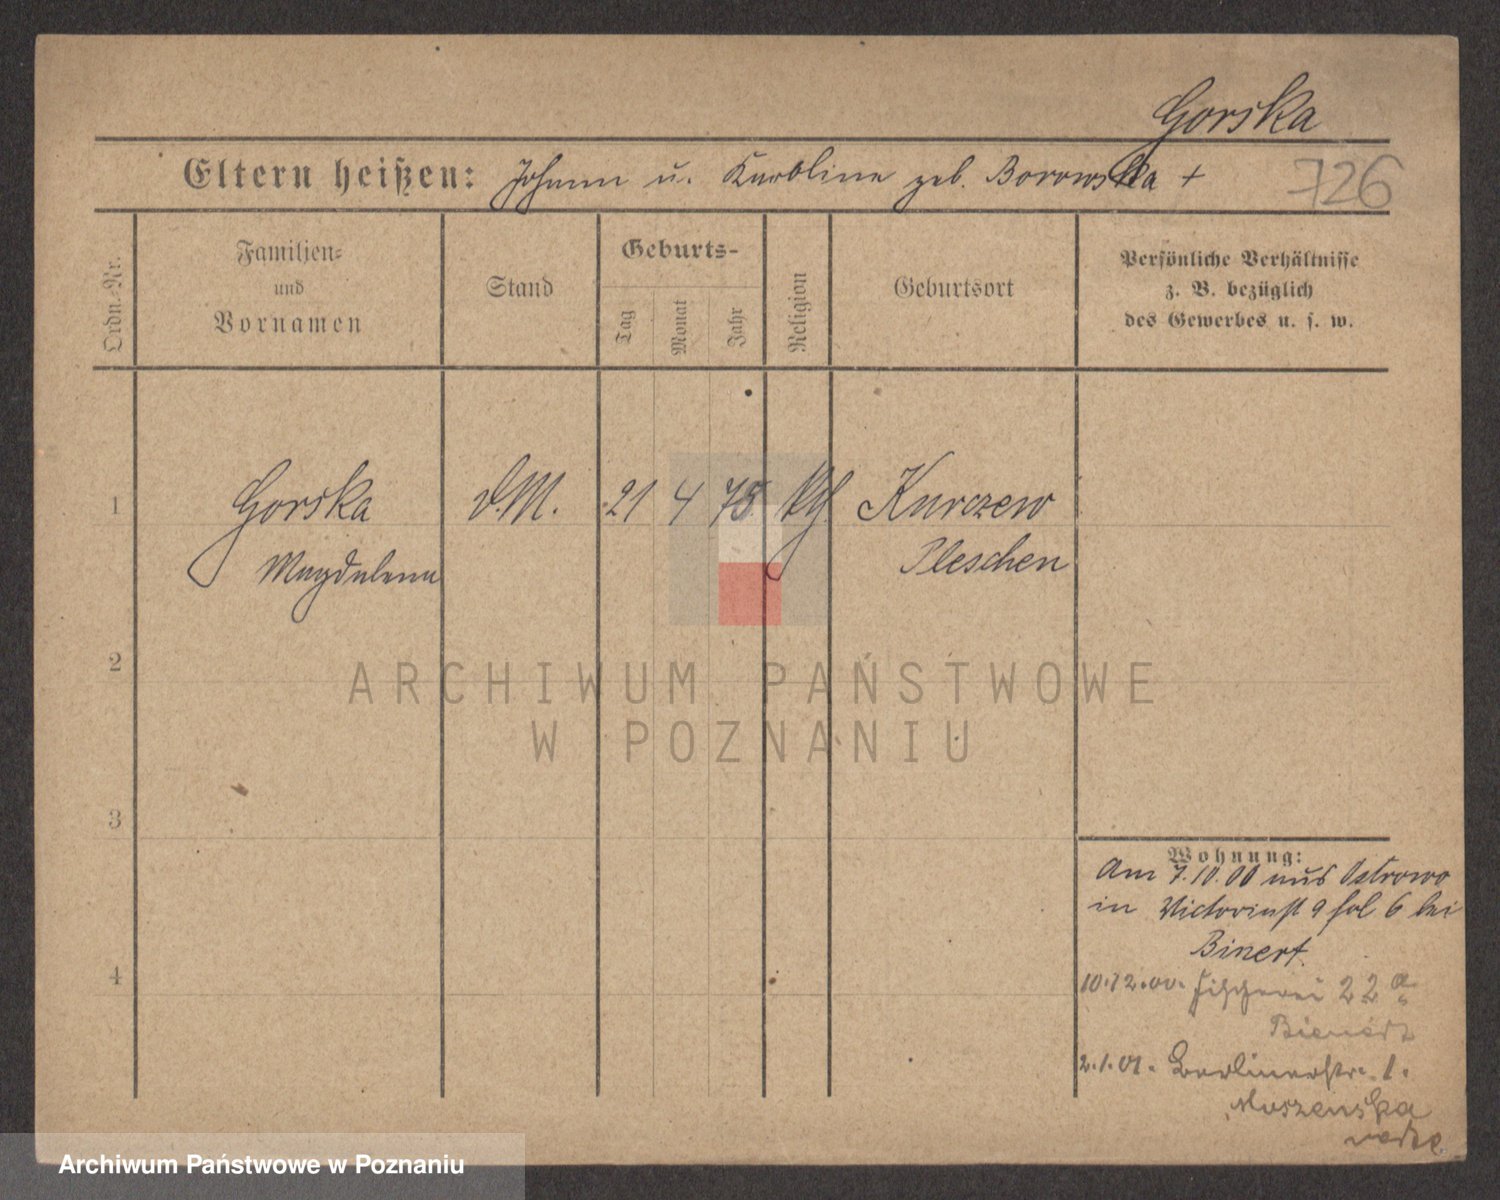 Gorska
Eltern heißen: Johann u. Karoline geb. Borowska +
726
Ordn.-Nr.
Familien-
und
Vornamen
Stand
Geburts-
Tag
Monat
Jahr
Religion
Geburtsort
Persönliche Verhältnisse
z. B. bezüglich
des Gewerbes u. s. w.
1
Gorska
Magdalena
d.M.
21 4 78
kth.
Kurczew
Pleschen
2
ARCHIWUM PAŃSTWOWE
W POZNANIU
3
4
Wohnung:
Am 7.10.00 aus Ostrowo
in Victoriast 9 bei
Binert.
10.12.00. Fischerei 22a
Bienert
2.1.01. Berlinerstr. 1.
Muszenska
Archiwum Państwowe w Poznaniu